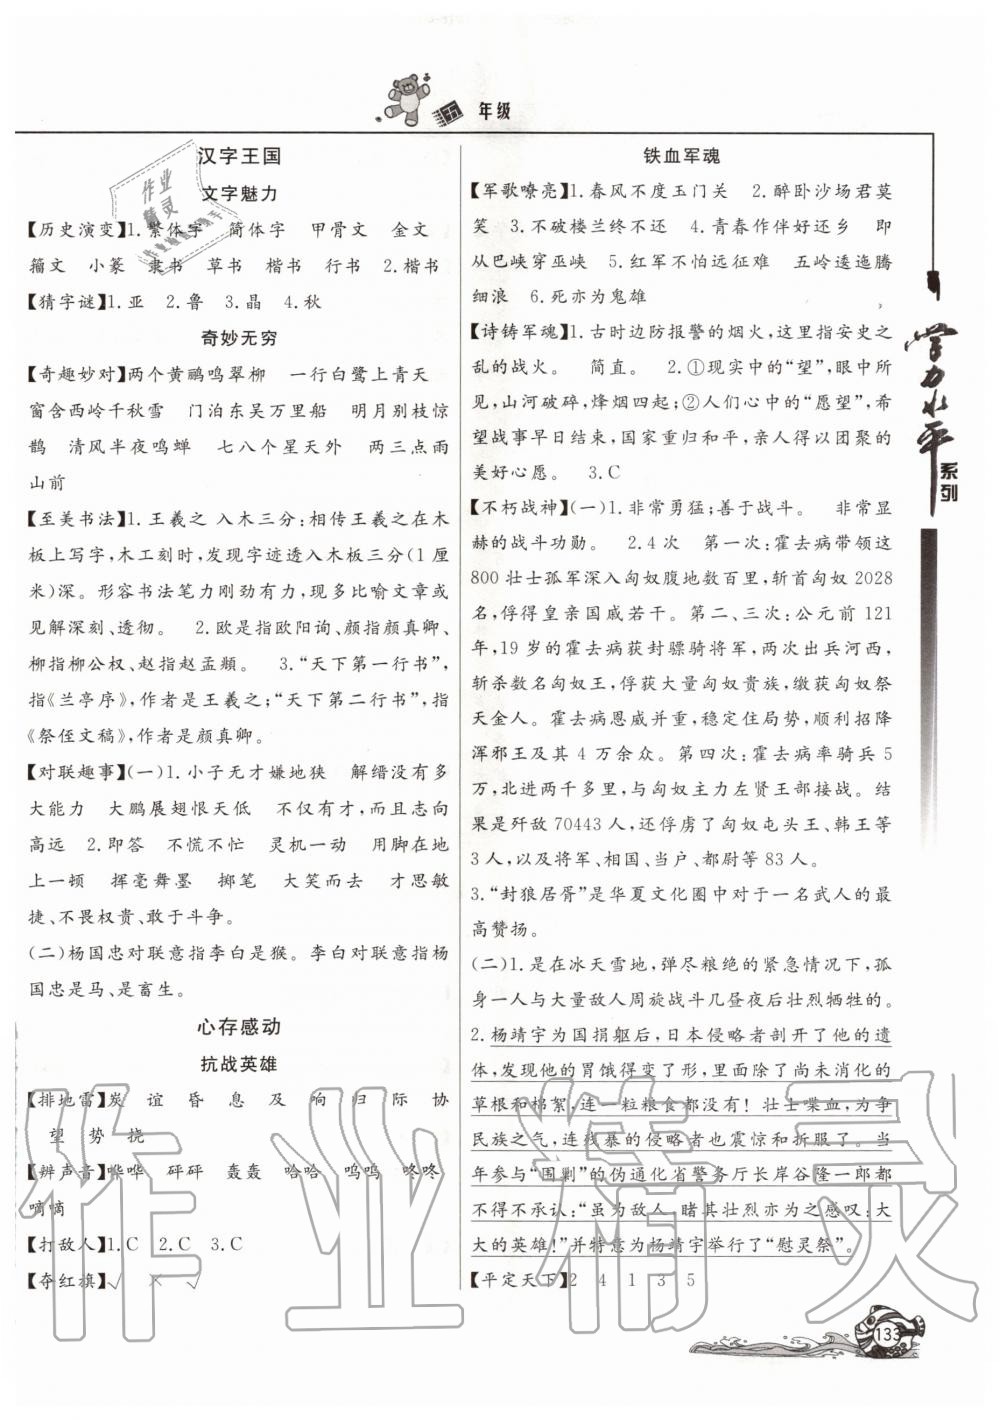 五年级
汉字王国
文字魅力
【历史演变】1.繁体字 简体字 甲骨文 金文
籀文 小篆 隶书 草书 楷书 行书 2.楷书
【猜字谜】1.亚 2.鲁 3.晶 4.秋
奇妙无穷
【奇趣妙对】两个黄鹂鸣翠柳 一行白鹭上青天
窗含西岭千秋雪 门泊东吴万里船 明月别枝惊
鹊 清风半夜鸣蝉 七八个星天外 两三点雨
山前
【至美书法】1.王羲之 入木三分:相传王羲之在木
板上写字,木工刻时,发现字迹透入木板三分(1厘
米)深。形容书法笔力刚劲有力,现多比喻文章或
见解深刻、透彻。 2.欧是指欧阳询、颜指颜真卿、
柳指柳公权、赵指赵孟頫。 3.“天下第一行书”,
指《兰亭序》,作者是王羲之;“天下第二行书”,指
《祭侄文稿》,作者是颜真卿。
【对联趣事】(一)1.小子无才嫌地狭 解缙没有多
大能力 大鹏展翅恨天低 不仅有才,而且志向
高远 2.即答 不慌不忙 灵机一动 用脚在地
上一顿 挥毫舞墨 掷笔 大笑而去 才思敏
捷、不畏权贵、敢于斗争。
(二)杨国忠对联意指李白是猴。李白对联意指杨
国忠是马、是畜生。
心存感动
抗战英雄
【排地雷】炭 谊 昏 息 及 响 归 际 协
望 势 挠
【辨声音】哗哗 砰砰 轰轰 哈哈 呜呜 咚咚
嘀嘀
【打敌人】1.C 2.C 3.C
【夺红旗】√ × √
铁血军魂
【军歌嘹亮】1.春风不度玉门关 2.醉卧沙场君莫
笑 3.不破楼兰终不还 4.青春作伴好还乡 即
从巴峡穿巫峡 5.红军不怕远征难 五岭逶迤腾
细浪 6.死亦为鬼雄
【诗铸军魂】1.古时边防报警的烟火,这里指安史之
乱的战火。 简直。 2.①现实中的“望”,眼中所
见,山河破碎,烽烟四起;②人们心中的“愿望”,希
望战事早日结束,国家重归和平,亲人得以团聚的
美好心愿。 3.C
【不朽战神】(一)1.非常勇猛;善于战斗。 非常显
赫的战斗功勋。 2.4次 第一次:霍去病带领这
800壮士孤军深入匈奴腹地数百里,斩首匈奴2028
名,俘得皇亲国戚若干。第二、三次:公元前121
年,19岁的霍去病获封骠骑将军,两次出兵河西,
斩杀数名匈奴王,俘获大量匈奴贵族,缴获匈奴祭
天金人。霍去病恩威并重,稳定住局势,顺利招降
浑邪王及其4万余众。第四次:霍去病率骑兵5
万,北进两千多里,与匈奴主力左贤王部接战。结
果是歼敌70443人,还俘虏了匈奴屯头王、韩王等
3人,以及将军、相国、当户、都尉等83人。
3.“封狼居胥”是华夏文化圈中对于一名武人的最
高赞扬。
(二)1.是在冰天雪地,弹尽粮绝的紧急情况下,孤
身一人与大量敌人周旋战斗几昼夜后壮烈牺牲的。
2.杨靖宇为国捐躯后,日本侵略者剖开了他的遗
体,发现他的胃饿得变了形,里面除了尚未消化的
草根和棉絮,连一粒粮食都没有!壮士喋血,为争
民族之气,连残暴的侵略者也震惊和折服了。当
年参与“围剿”的伪通化省警务厅长岸谷隆一郎都
不得不承认:“虽为敌人,睹其壮烈亦为之感叹:大
大的英雄!”并特意为杨靖宇举行了“慰灵祭”。
【平定天下】2 4 1 3 5
学力水平
系列
133
作业精灵
作业精灵